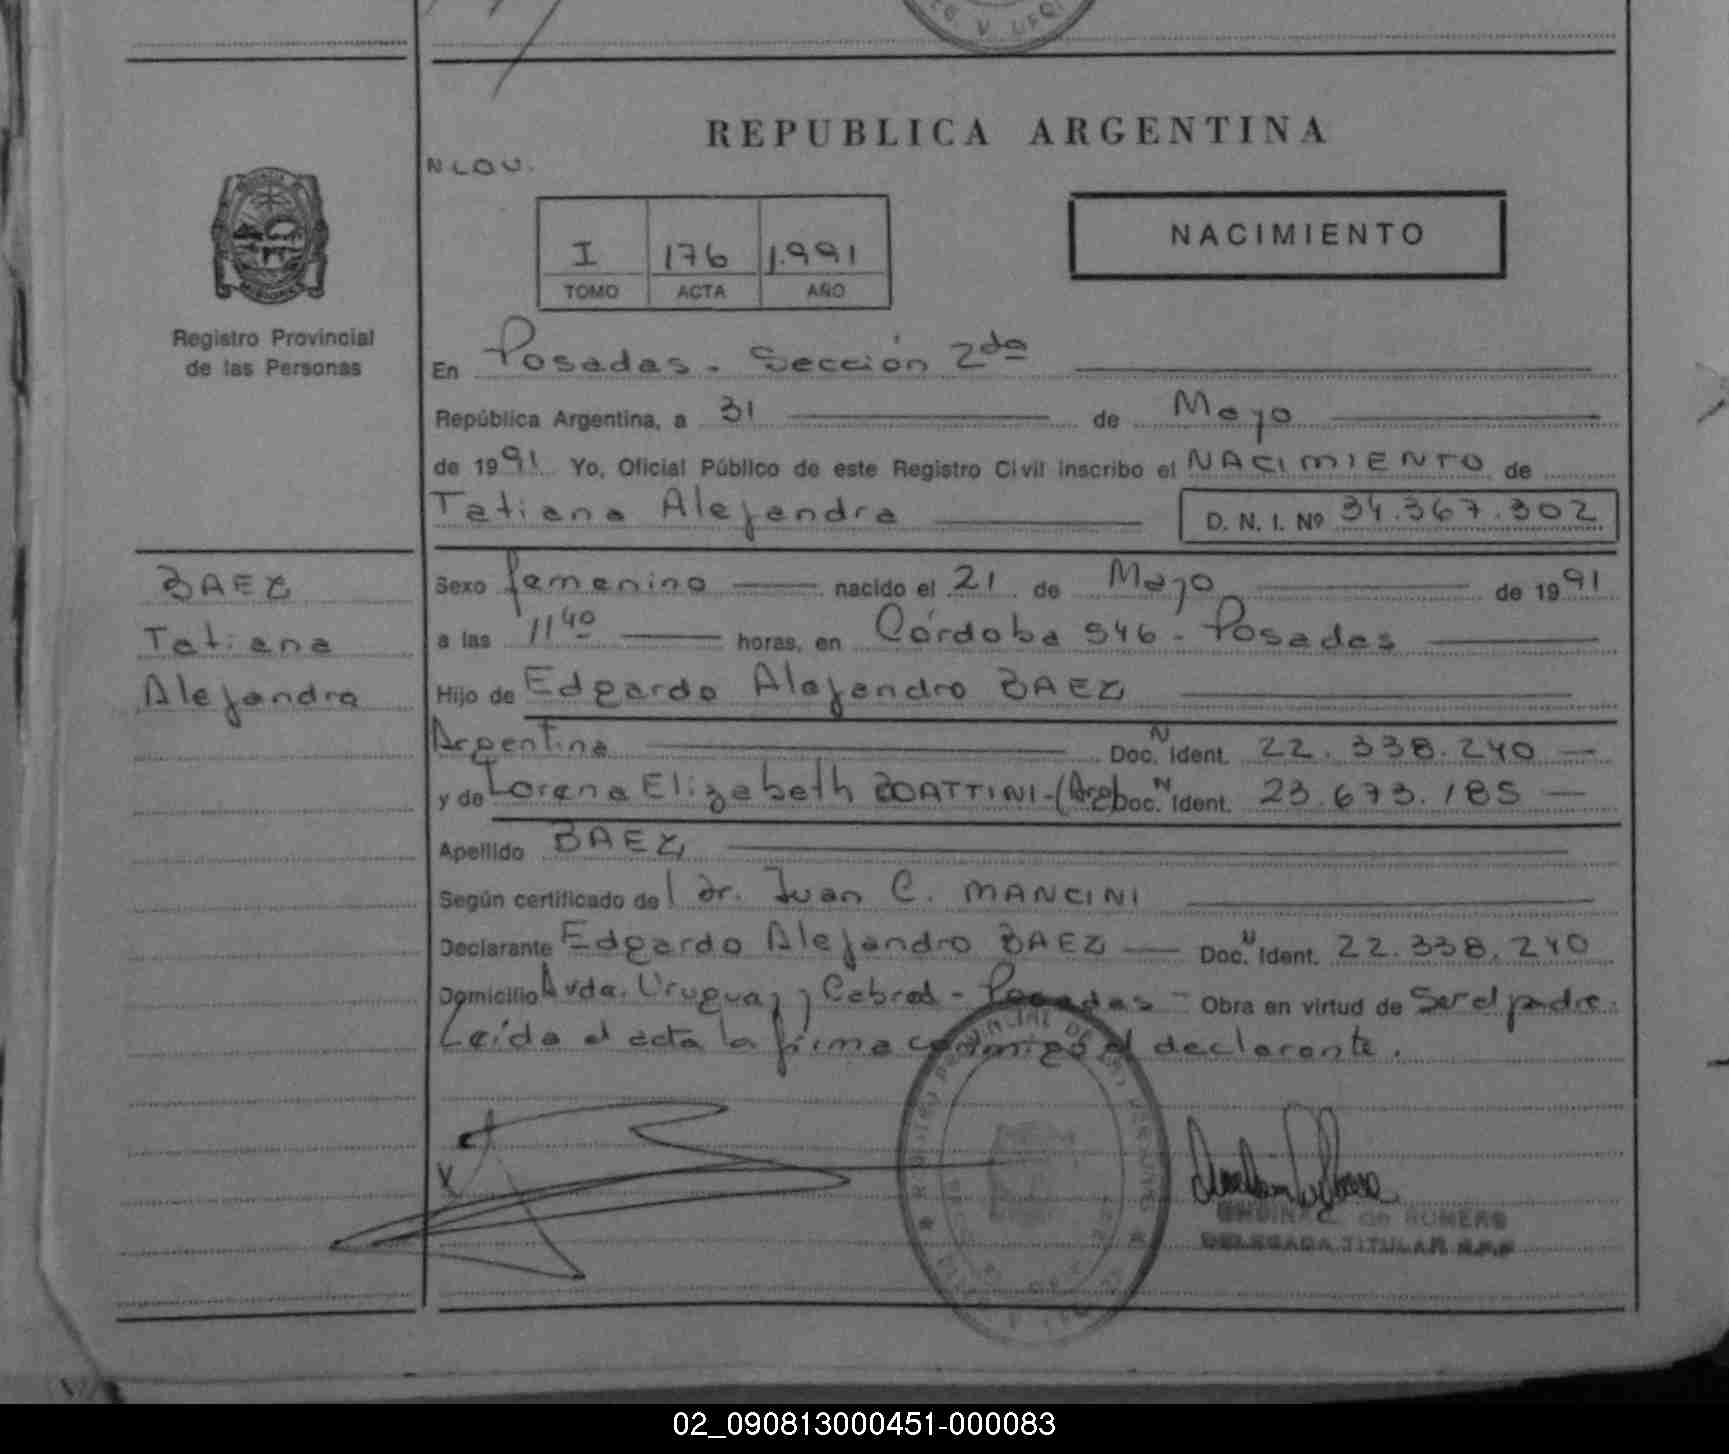 REPUBLICA ARGENTINA
NLOU.
NACIMIENTO
I 176 1.991
TOMO ACTA AÑO
Registro Provincial
de las Personas
En Posadas. Sección 2da
República Argentina, a 31 de Mayo
de 1991 Yo, Oficial Público de este Registro Civil inscribo el NACIMIENTO de
Tatiana Alejandra D. N. I. Nº 34.367.302
BAEZ
Tatiana
Alejandra
Sexo femenino nacido el 21 de Mayo de 1991
a las 11 40 horas, en Córdoba 546 - Posadas
Hijo de Edgardo Alejandro BAEZ
Argentina Doc. N Ident. 22.338.240
y de Lorena Elizabeth BOATTINI - (Arg) Doc. N Ident. 23.673.185
Apellido BAEZ
Según certificado del dr. Juan C. MANCINI
Declarante Edgardo Alejandro BAEZ Doc. N Ident. 22.338.240
Domicilio Avda. Uruguay y Cabral - Posadas - Obra en virtud de Ser el padre.
Leída el acta la firma conmigo el declarante.
X
DELEGADA TITULAR R.P.P
02_090813000451-000083